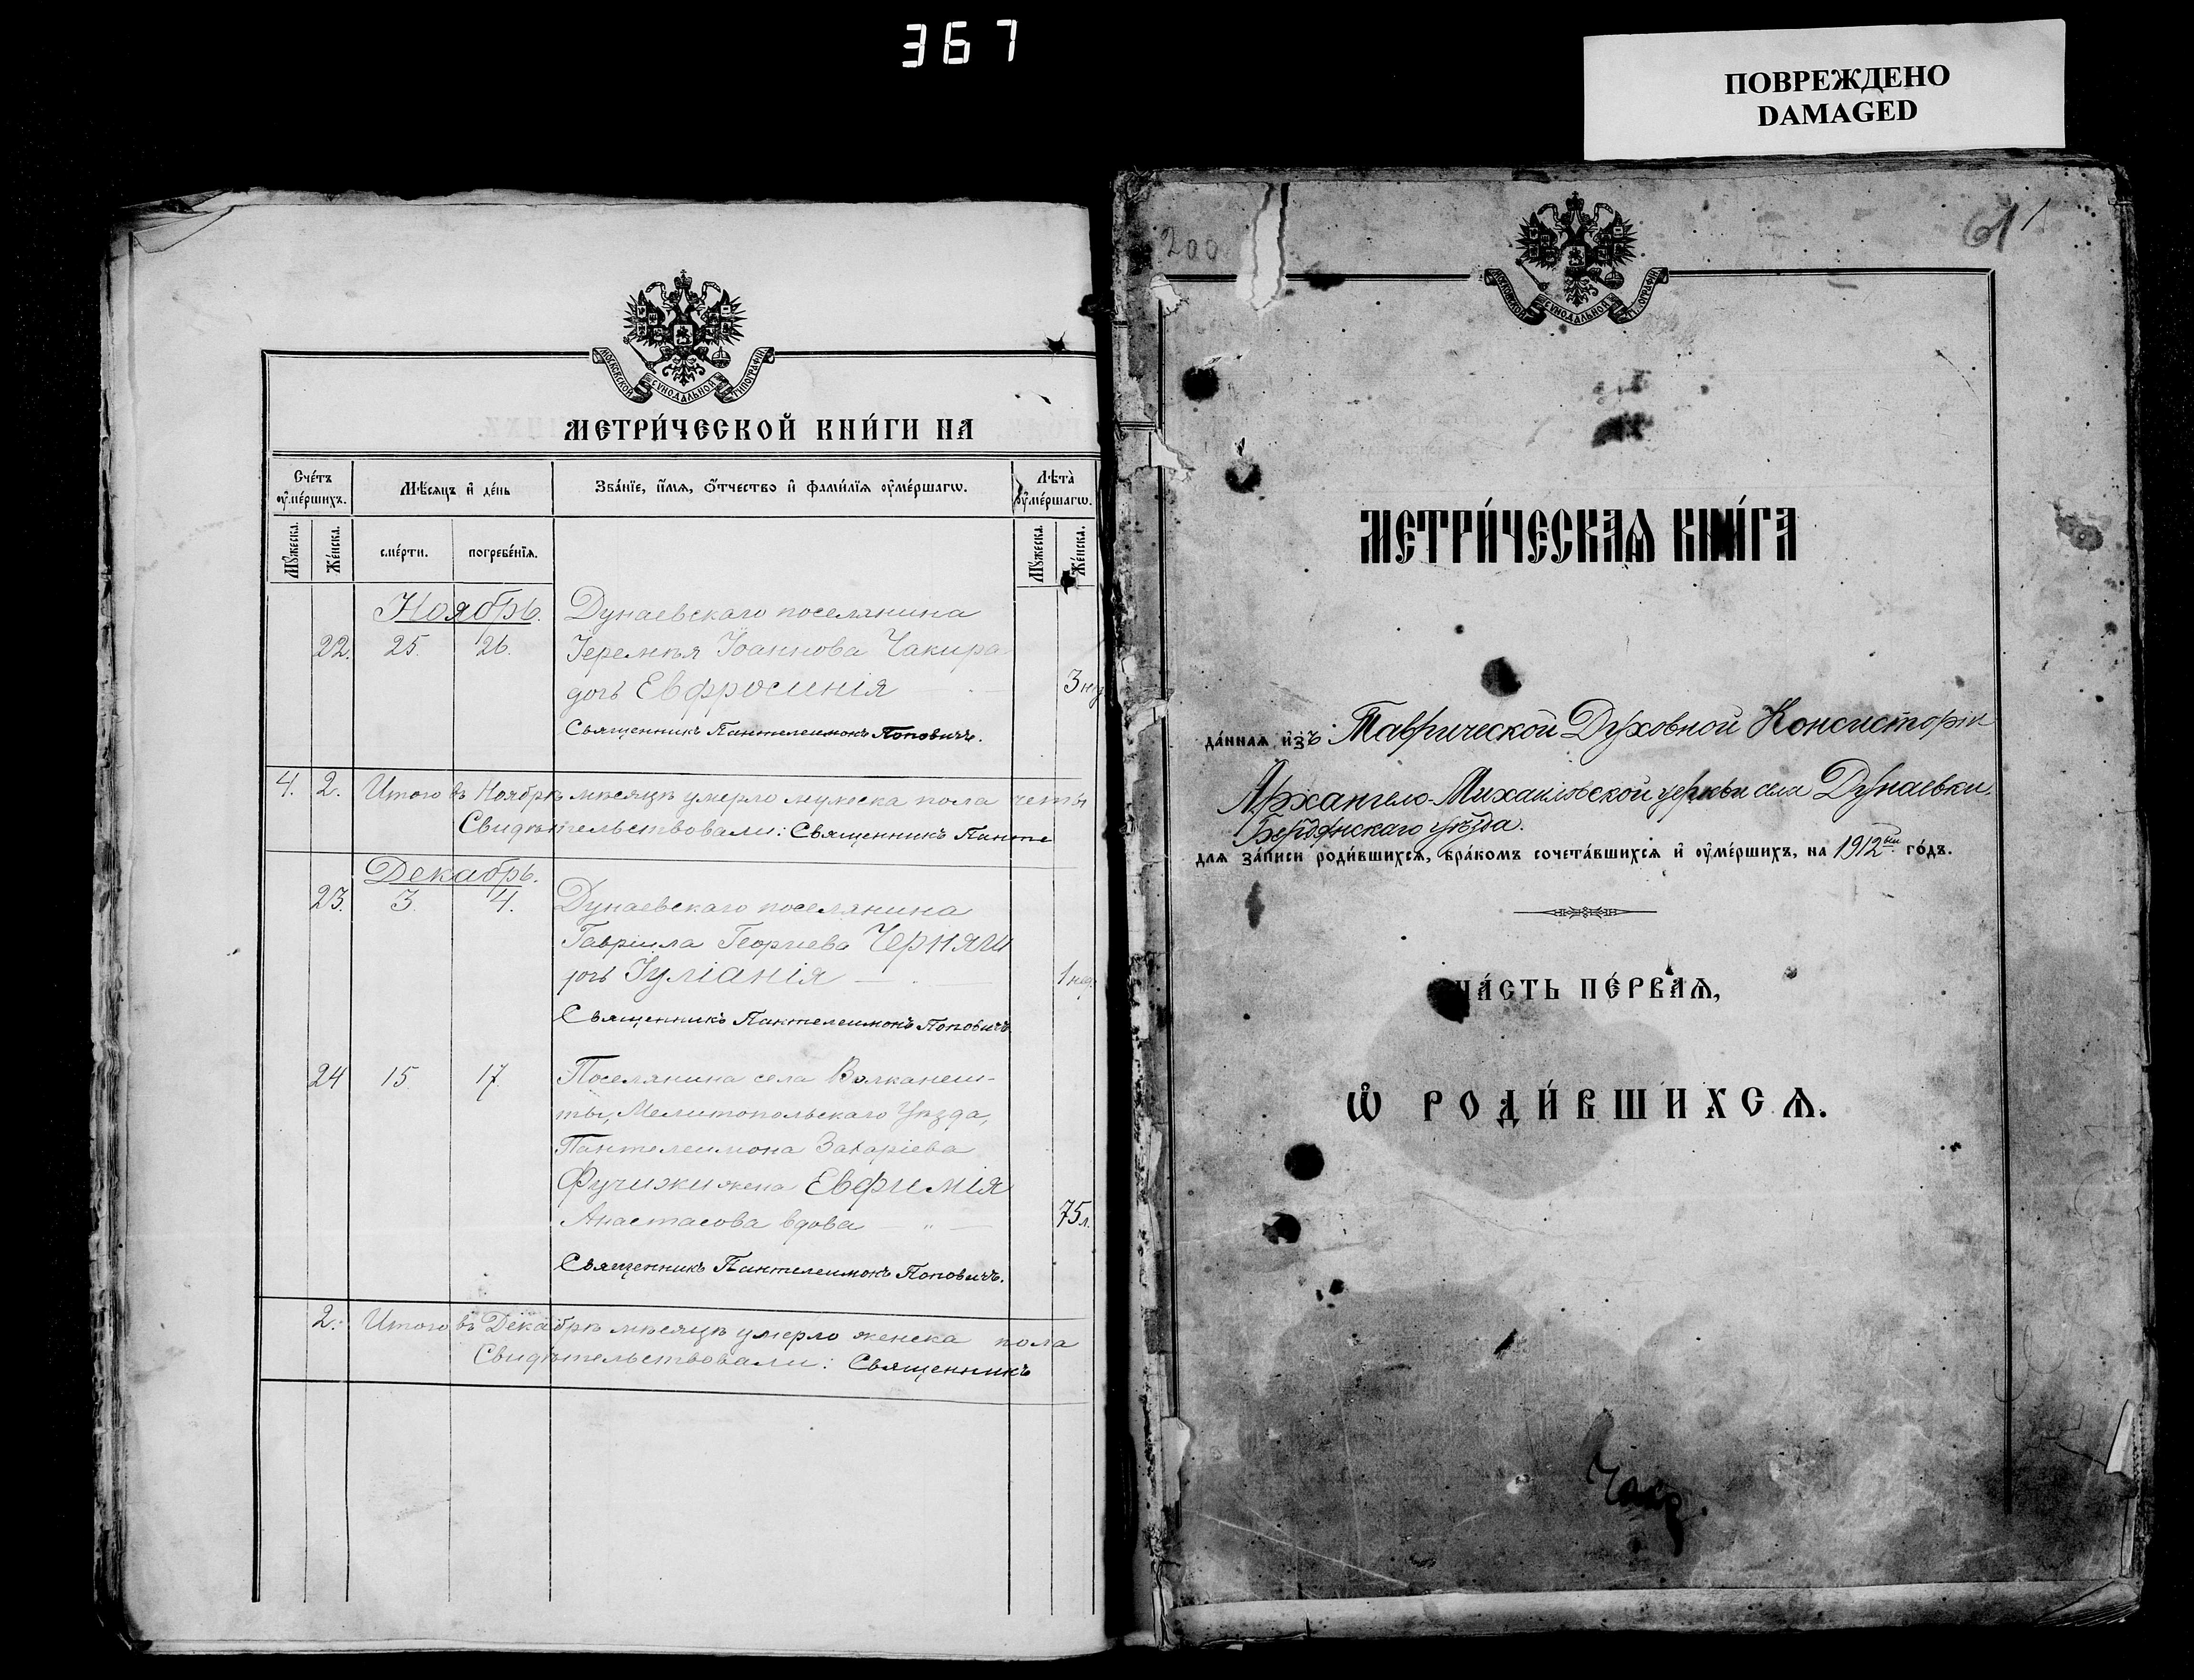 367
ПОВРЕЖДЕНО
DAMAGED
МОСКОВСКОЙ СѴНОДАЛЬНОЙ ТИПОГРАФІИ
МЕТРИ́ЧЕСКОЙ КНИ́ГИ НА
Сче́тъ оу҆ме́ршихъ.
Мѣ́сяцъ и҆ де́нь
Зва́нїе, и҆́мя, ѻ҆́тчество и҆ фами́лїя оу҆ме́ршагѡ.
Лѣта̀ оу҆ме́ршагѡ.
Мꙋжеска.
Же́нска.
сме́рти.
погребе́нїя.
Мꙋжеска.
Же́нска.
Ноябрь.
Дунаевскаго поселянина
22. 25. 26. Іеремѣя Іоаннова Чакира
дочь Евфросинія 3 нед
Священникъ Пантелеимонъ Поповичъ.
4. 2. Итого въ Ноябрѣ мѣсяцѣ умерло мужеска пола четы
Свидѣтельствовали: Священникъ Панте
Декабрь.
23. 3. 4. Дунаевскаго поселянина
Гавріила Георгіева Черняги
дочь Іуліанія 1 нед.
Священникъ Пантелеимонъ Поповичъ
24 15 17. Поселянина села Волканеш-
ты, Мелитопольскаго Уѣзда,
Пантелеимона Захаріева
Фучижи жена Евфимія
Анастасова вдова 75 л.
Священникъ Пантелеимонъ Поповичъ.
2. Итого въ Декабрѣ мѣсяцѣ умерло женска пола
Свидѣтельствовали: Священникъ
200
61
МОСКОВСКОЙ СѴНОДАЛЬНОЙ ТИПОГРАФІИ
МЕТРИ́ЧЕСКАѦ КНИ́ГА
да́ннаѧ и҆зъ Таврической Духовной Консисторіи
Архангело-Михаиловской церкви села Дунаевки,
Бердянскаго уѣзда.
для за́писи роди́вшихсѧ, бра́комъ сочета́вшихсѧ и҆ оу҆ме́ршихъ, на 1912ый го́дъ.
ЧА́СТЬ ПЕ́РВАѦ,
Ѡ҆ РОДИ́ВШИХСѦ.